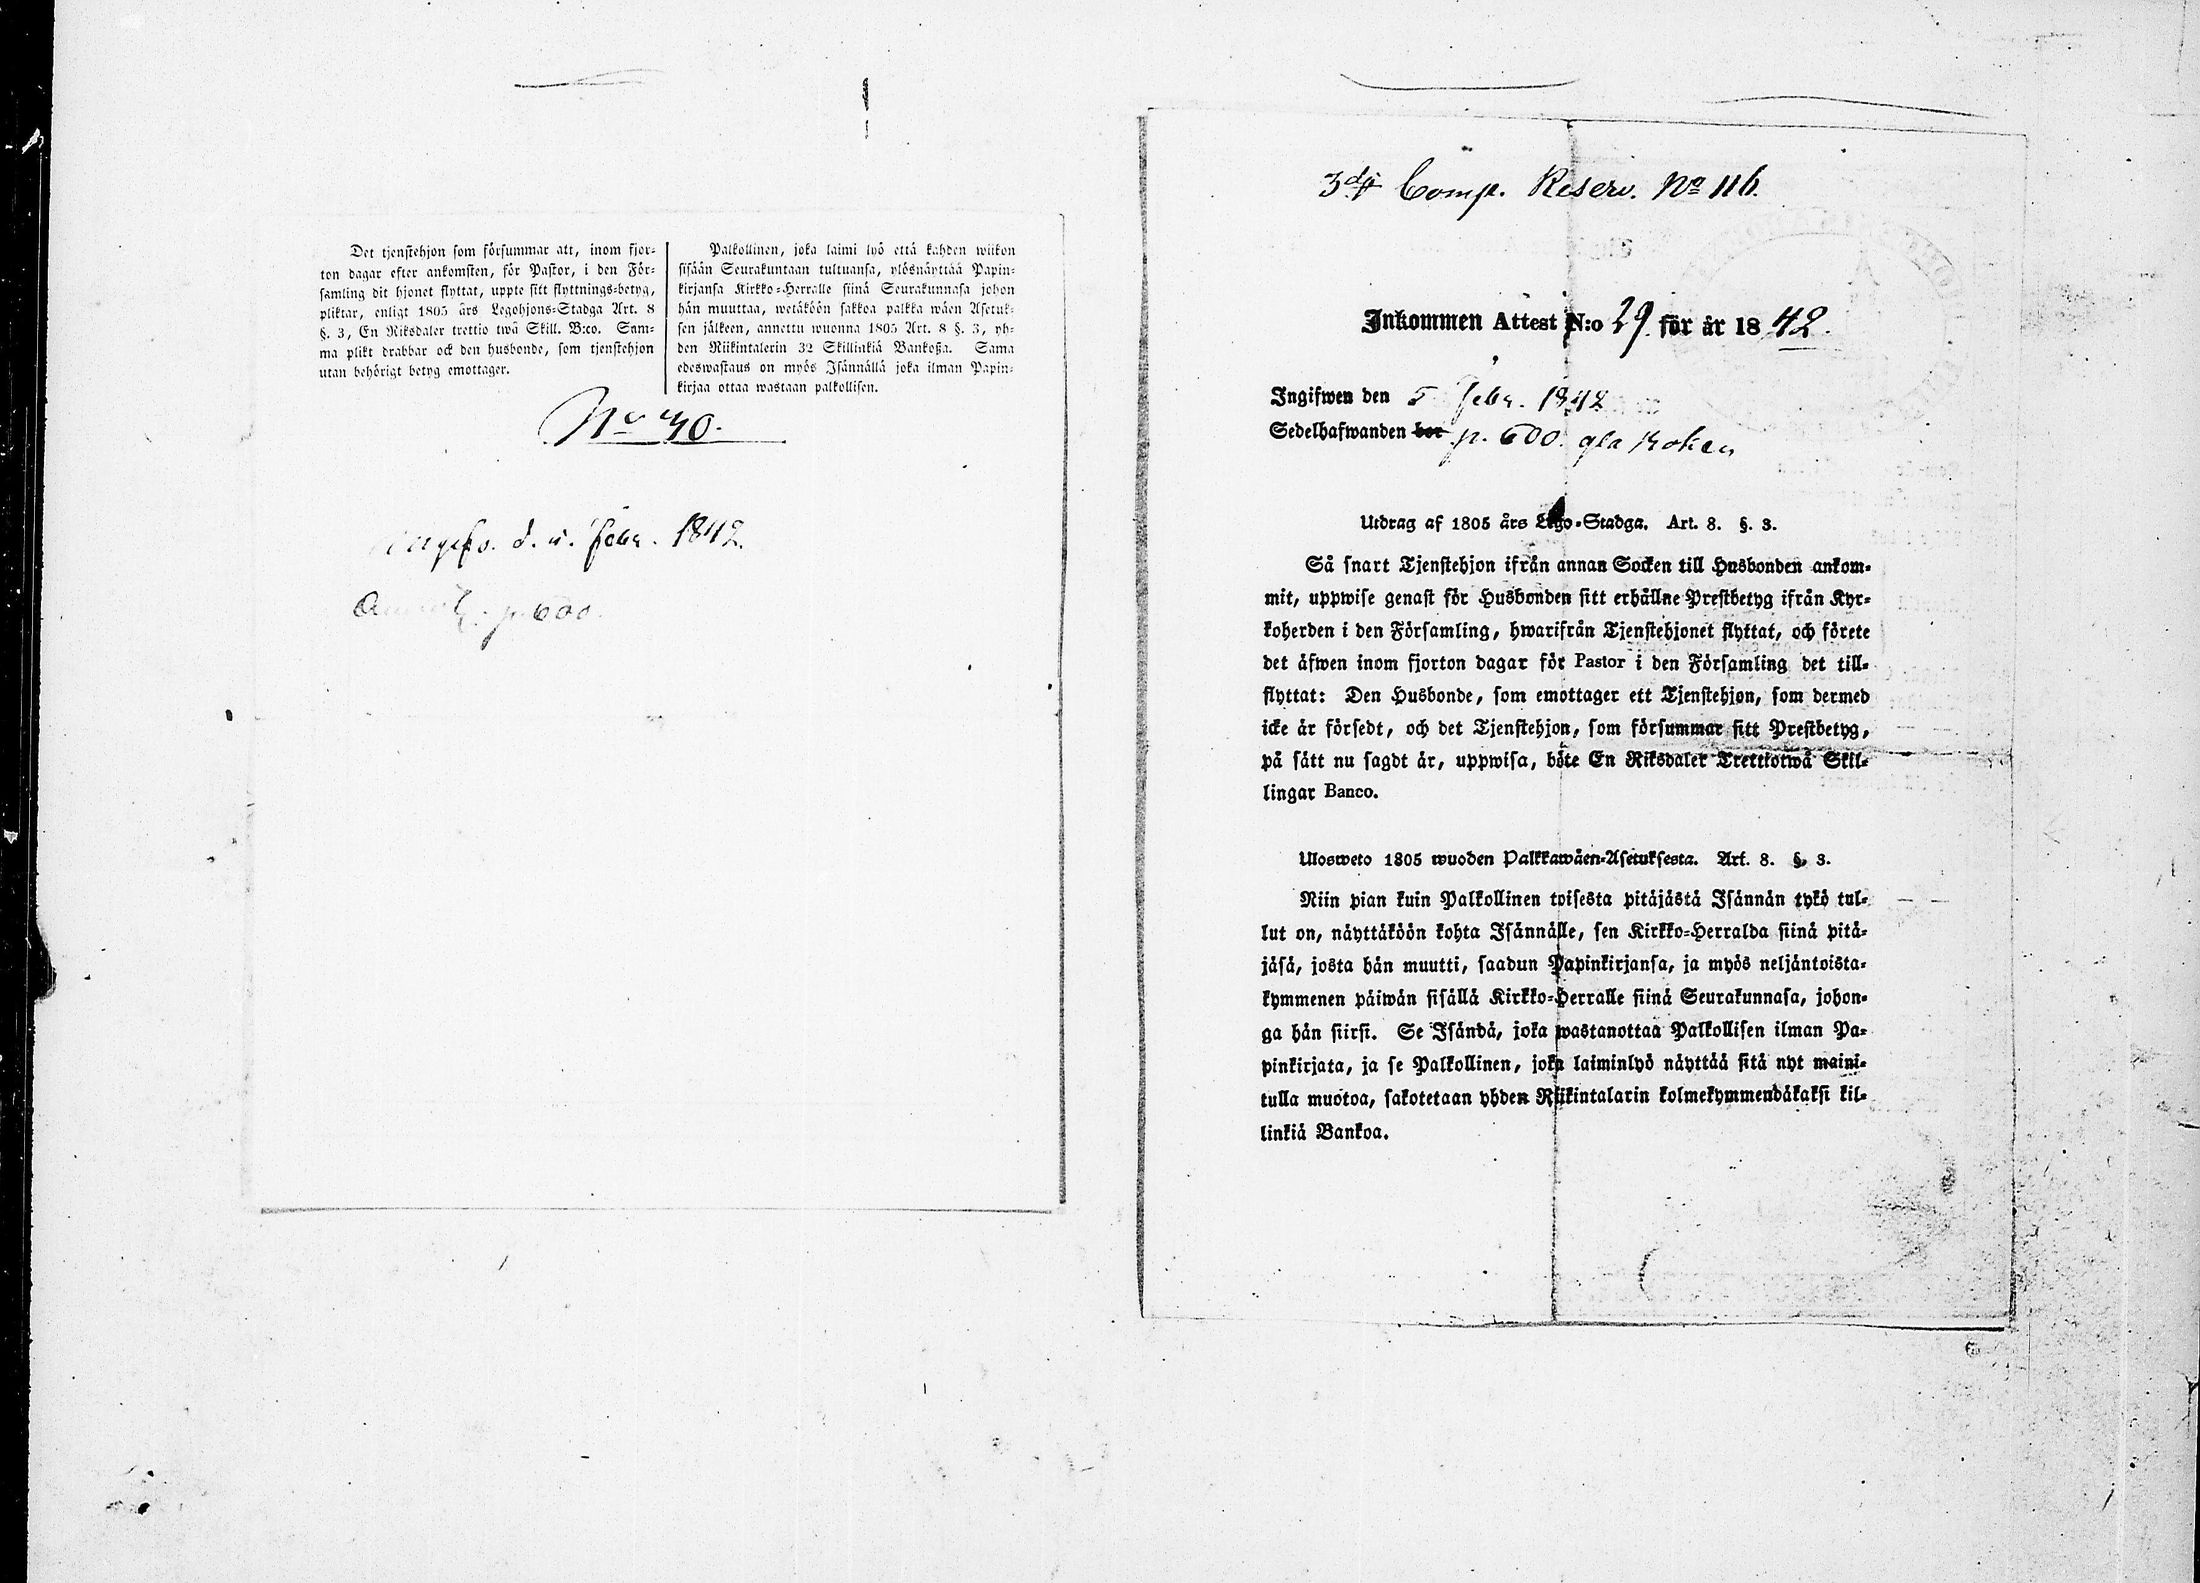 Det tjenstehjon som försummar att, inom fjor-
ton dagar efter ankomsten, för Pastor, i den För-
samling dit hjonet flyttat, uppte sitt flyttnings-betyg,
pliktar, enligt 1805 års Legohjons-Stadga Art. 8
§. 3, En Riksdaler trettio twå Skill. B:co. Sam-
ma plikt drabbar ock den husbonde, som tjenstehjon
utan behörigt betyg emottager.
Palkollinen, joka laimi lyö että kahden wiikon
sisään Seurakuntaan tultuansa, ylösnäyttää Papin-
kirjansa Kirkko-Herralle siinä Seurakunnasa johon
hän muuttaa, wetäköön sakkoa palkka wäen Asetuk-
sen jälkeen, annettu wuonna 1805 Art. 8 §. 3, yh-
den Riikintalerin 32 Skillinkiä Bankoßa. Sama
edeswastaus on myös Isännällä joka ilman Papin-
kirjaa ottaa wastaan palkollisen.
No 40.
d. Febr. 1842.
p. 600.
3dj Comp. Reserv. No 116.
Inkommen Attest N:o 29 för år 1842.
Ingifwen den 5 Febr. 1842
Sedelhafwanden bor p. 600. gla Boken
Utdrag af 1805 års Lego-Stadga. Art. 8. §. 3.
Så snart Tjenstehjon ifrån annan Socken till Husbonden ankom-
mit, uppwise genast för Husbonden sitt erhållne Prestbetyg ifrån Kyr-
koherden i den Församling, hwarifrån Tjenstehjonet flyttat, och förete
det äfwen inom fjorton dagar för Pastor i den Församling det till-
flyttat: Den Husbonde, som emottager ett Tjenstehjon, som dermed
icke är försedt, och det Tjenstehjon, som försummar sitt Prestbetyg,
på sätt nu sagdt är, uppwisa, böte En Riksdaler Trettiotwå Skil-
lingar Banco.
Ulosweto 1805 wuoden Palkkawäen-Asetuksesta. Art. 8. §. 3.
Niin pian kuin Palkollinen toisesta pitäjästä Isännän tykö tul-
lut on, näyttäköön kohta Isännälle, sen Kirkko-Herralda siinä pitä-
jäsä, josta hän muutti, saadun Papinkirjansa, ja myös neljäntoista-
kymmenen päiwän sisällä Kirkko-Herralle siinä Seurakunnasa, johon-
ga hän siirsi. Se Isändä, joka wastanottaa Palkollisen ilman Pa-
pinkirjata, ja se Palkollinen, joka laiminlyö näyttää sitä nyt maini-
tulla muotoa, sakotetaan yhden Riikintalarin kolmekymmendäkaksi kil-
linkiä Bankoa.